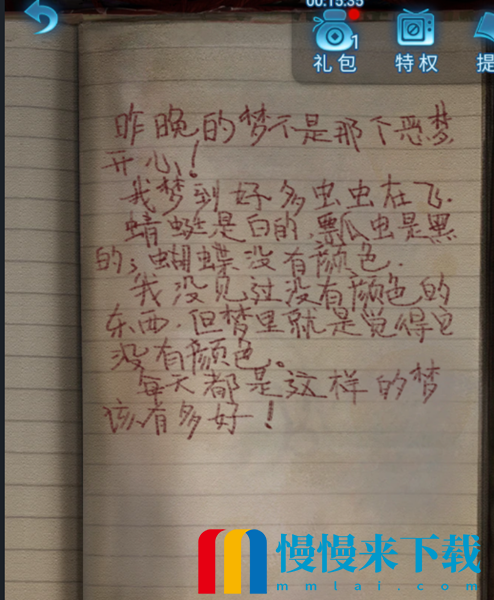 00:15:35
1
礼包
特权
提
昨晚的梦不是那个恶梦
开心！
我梦到好多虫虫在飞.
蜻蜓是白的,瓢虫是黑
的;蝴蝶没有颜色.
我没见过没有颜色的
东西.但梦里就是觉得它
没有颜色。
每天都是这样的梦
该有多好！
慢慢来下载
mmlai.com